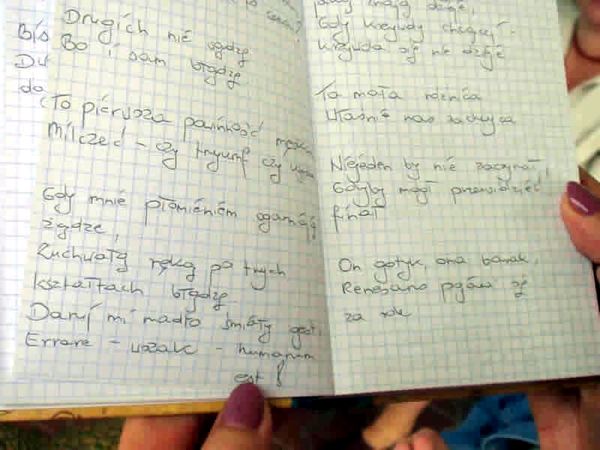 Drugich nie sądzę
Bo i sam błądzę
(To pierwsza powinność
Milczeć - czy tryumf czy
Gdy mnie płomieniem ogarniają
żądze,
Zuchwałą ręką po twych
kształtach błądzę
Daruj mi madło śmiały gest.
Errare - wszak - humanum
est!
Gdy krzywdy chcącej
Krzywda się nie dzieje
Ta mała różnica
Właśnie nas zachwyca
Niejeden by nie zaczynał,
Gdyby mógł przewidzieć
finał
On gotyk, ona barok.
Renesans pojawi się
za rok